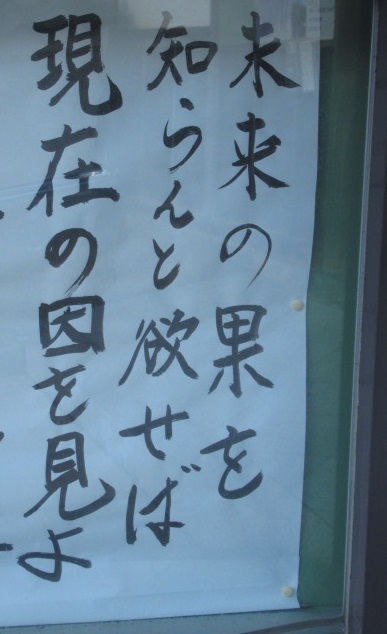 未来の果を
知らんと欲せば
現在の因を見よ